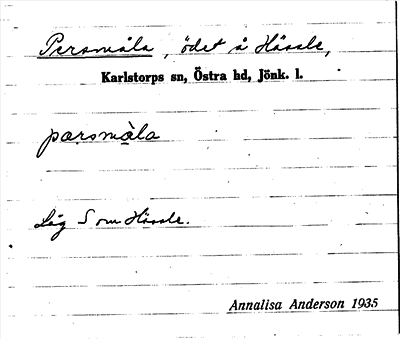 Persmåla, ödet å Hässle,
Karlstorps sn, Östra hd, Jönk. l.
pærsmåla
Låg S om Hässle.
Annalisa Anderson 1935